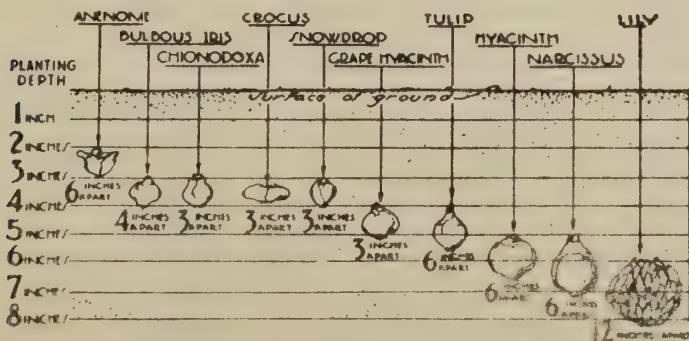 ANENOME
CROCUS
TULIP
LILY
BULBOUS IRIS
SNOWDROP
HYACINTH
CHIONODOXA
GRAPE HYACINTH
NARCISSUS
PLANTING
DEPTH
surface of ground
1 INCH
2 INCHES
3 INCHES
4 INCHES
5 INCHES
6 INCHES
7 INCHES
8 INCHES
6 INCHES
APART
4 INCHES
APART
3 INCHES
APART
3 INCHES
APART
3 INCHES
APART
3 INCHES
APART
6 INCHES
APART
6 INCHES
APART
6 INCHES
APART
12 INCHES APART